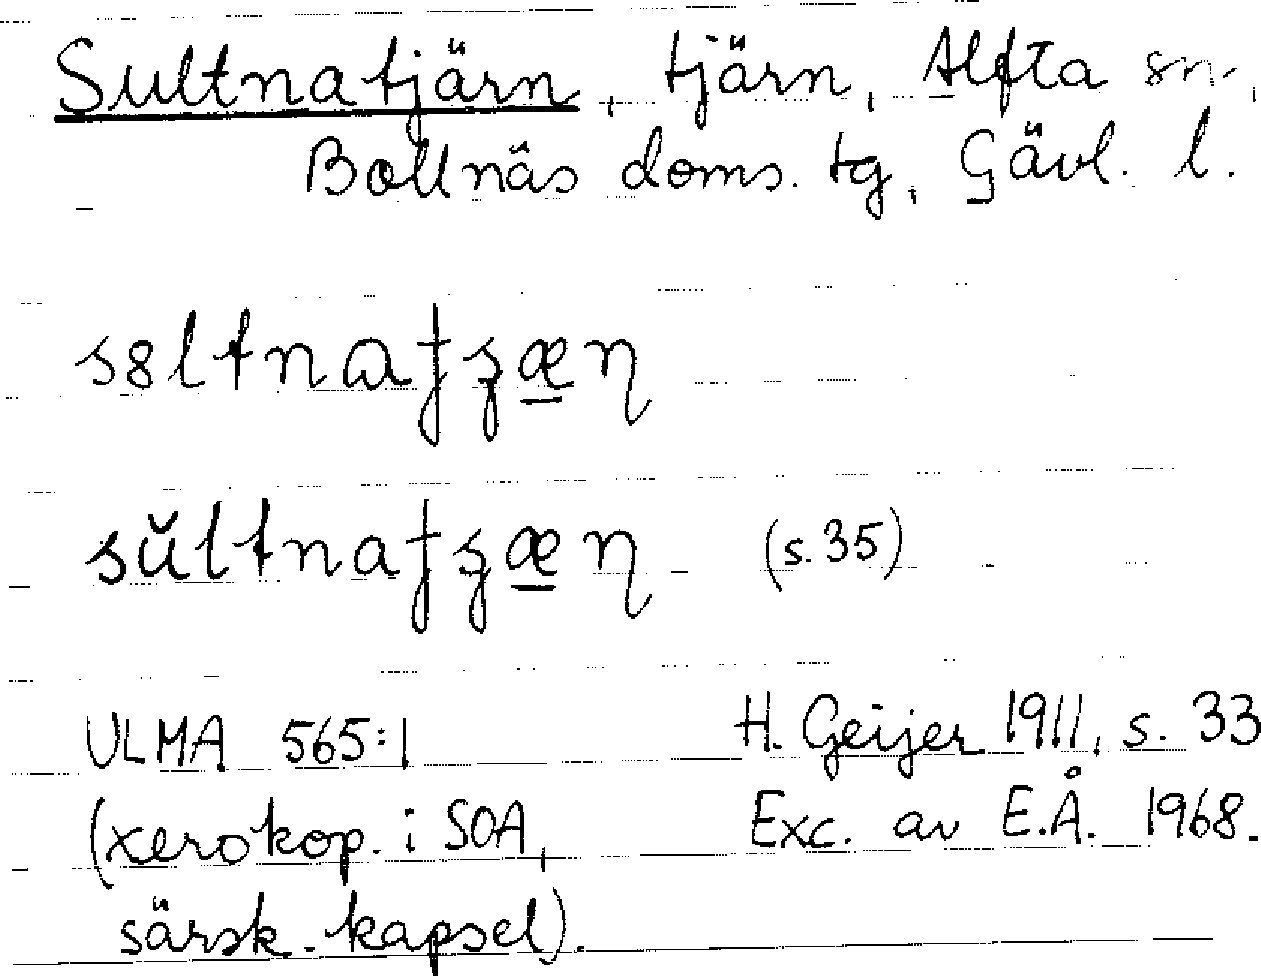 Sultnatjärn, tjärn, Alfta sn,
Bollnäs doms. tg, Gävl. l.
(s. 35)
ULMA 565:1 H. Geijer 1911, s. 33
(xerokop. i SOA, Exc. av E.Å. 1968.
särsk. kapsel).